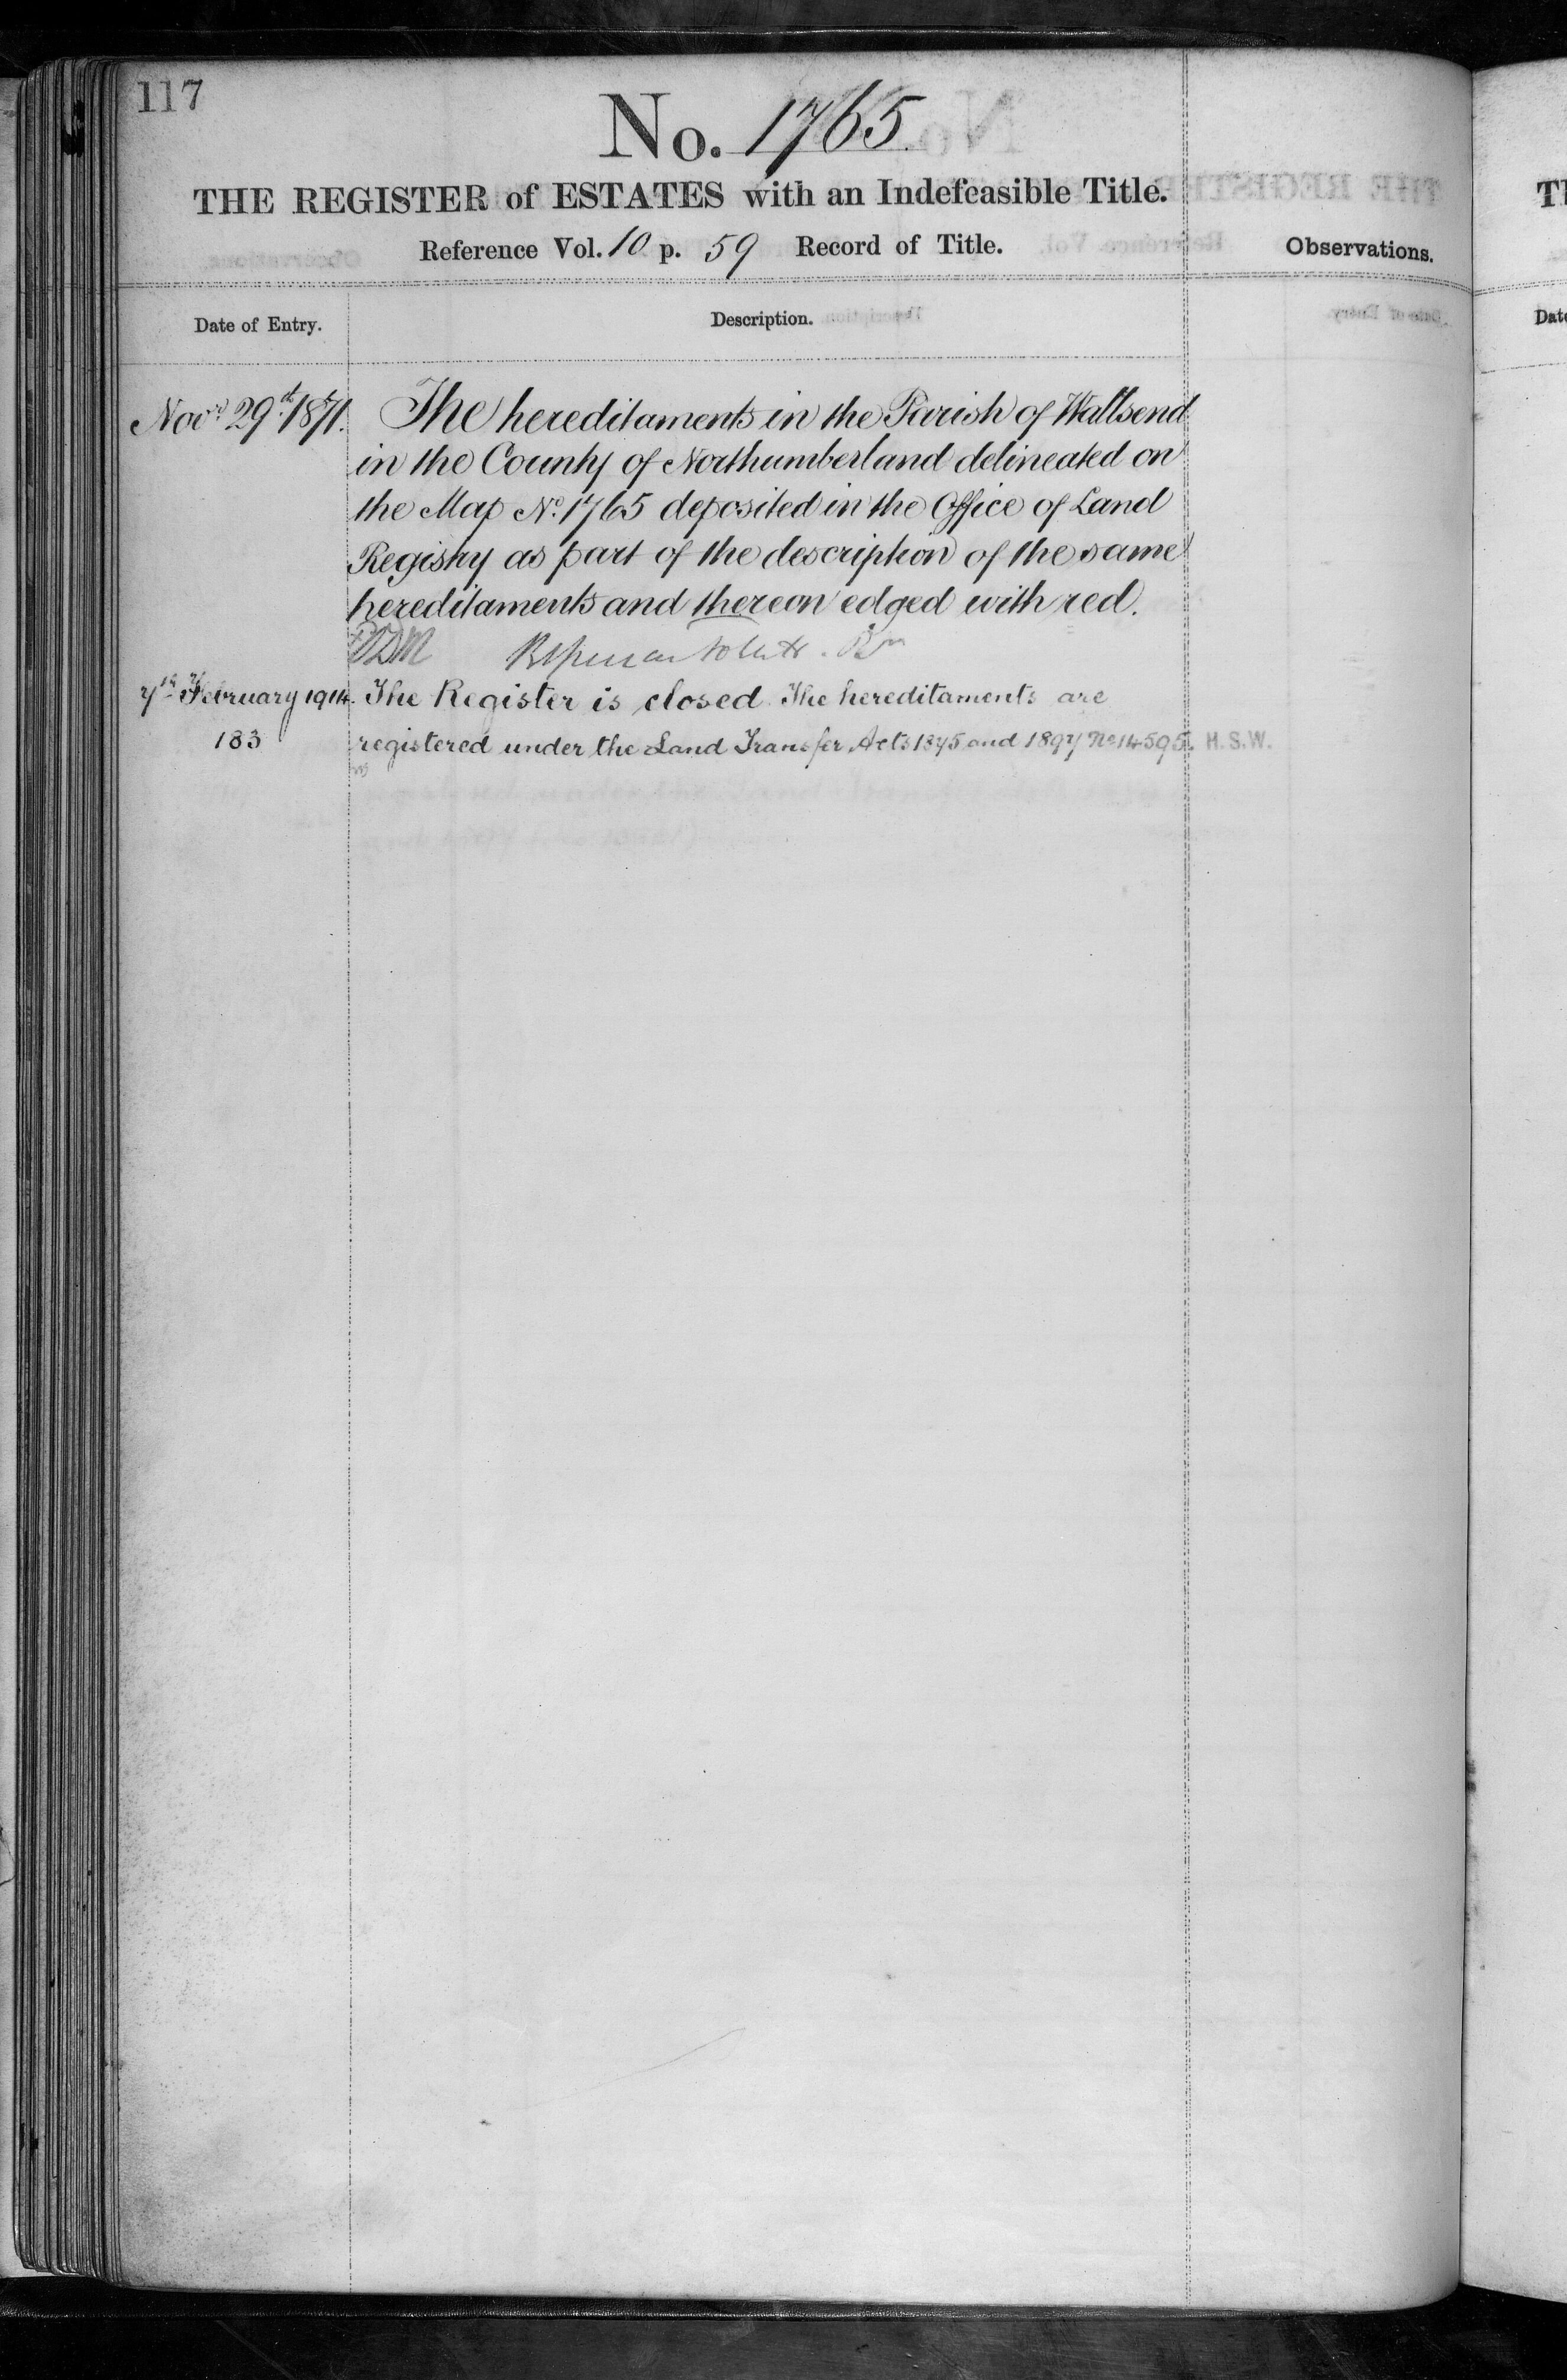 117
No. 1765.
THE REGISTER of ESTATES with an Indefeasible Title.
Reference Vol. 10 p. 59 Record of Title.
Observations.
Date of Entry.
Description.
Novr. 29th 1871. The hereditaments in the Parish of Wallsend
in the County of Northumberland delineated on
the Map No. 1765 deposited in the Office of Land
Registry as part of the description of the same
hereditaments and thereon edged with red.
7th February 1914. The Register is closed. The hereditaments are
183 registered under the Land Transfer Acts 1875 and 1897 No. 14595. H.S.W.